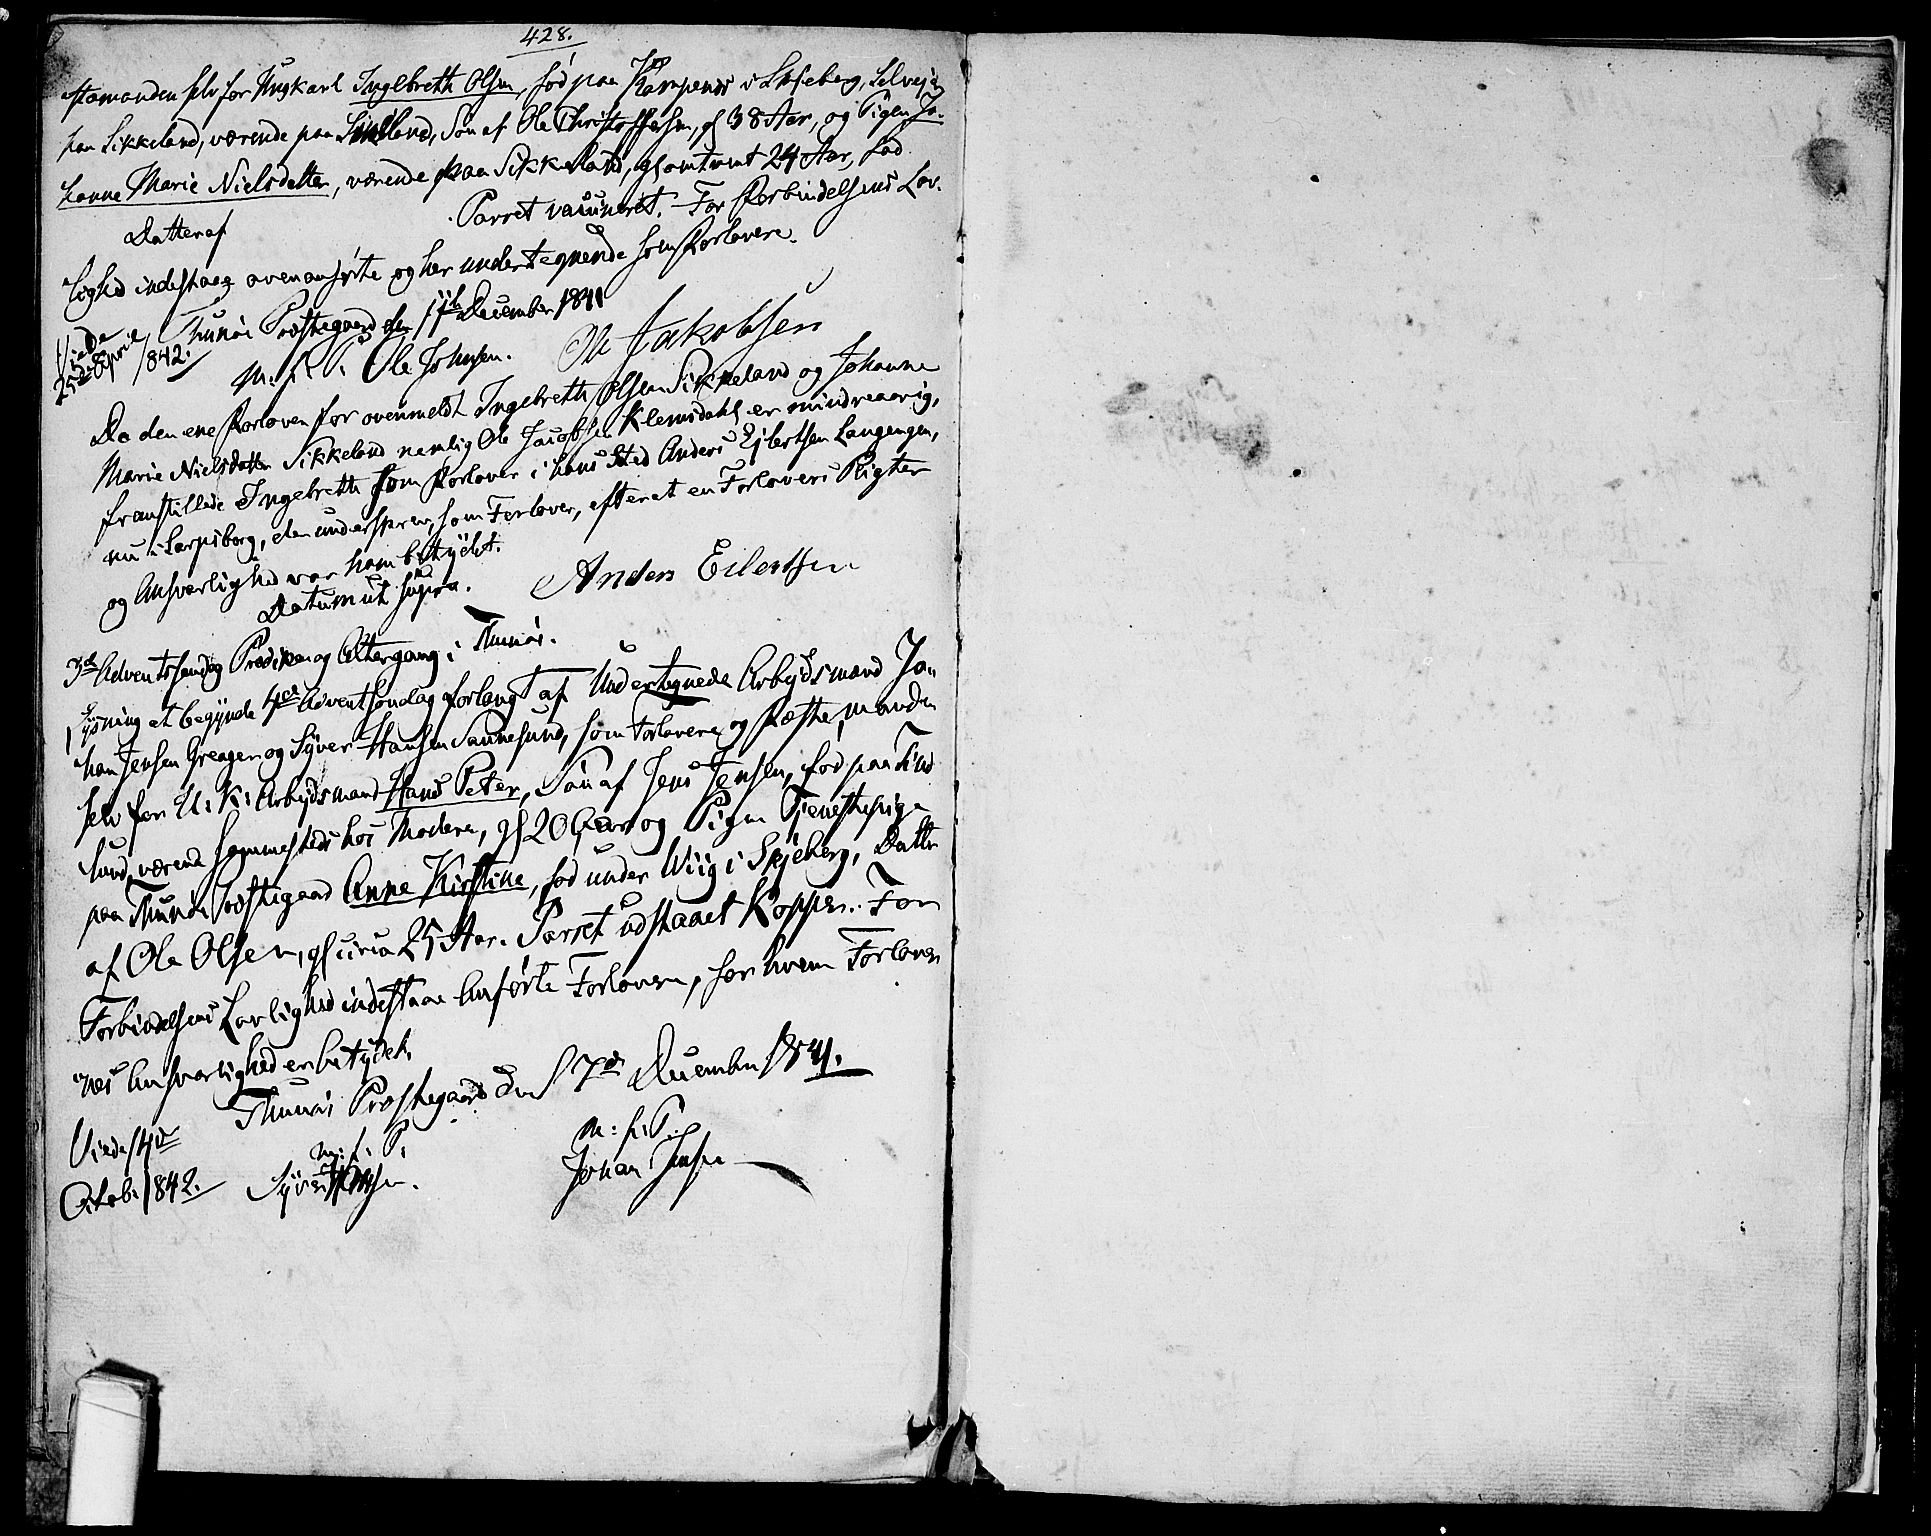 428.
stamanden selv for Ungkarl Ingelbreth Olsen, fød paa Kampenes i Skjeberg, Selvejer
paa Sikkeland, værende paa Sikkeland, Søn af Ole Christophersen, gl 38 Aar, og Pigen Jo-
hanne Marie Nielsdatter, værende paa Sikkeland, gl omtrent 24 Aar, fød
Datter af Parret vaccineret. For Forbindelsens Lov-
lighed indestaae ovenanførte og her undertegnede som Forlovere.
Thunøe Præstegaard den 11te December 1841
Viede
25de April 1842.
m. f. P. Ole Johnsen. Ole Jakobsen
Da den ene Forlover for ovenmeldt Ingebreth Olsen Sikkeland og Johanne
Marie Nielsdatter Sikkeland nemlig Ole Jacobsen Klemsdahl er mindreaarig,
fremstillede Ingebreth som Forlover i hans Sted Anders Ejlertsen Langengen,
nu i Sarpsborg, der underskrev, som Forlover, efterat en Forlovers Pligter
og Ansvarlighed var ham betydet.
Datum ut supra. Anders Eilertsen
3d Adventssøndag Prædiken og Altergang i Thunøe.
Lysning at begynde 4de Adventsøndag forlangt af Undertegnede Arbejdsmand Jo-
han Jensen Greager og Syver Hansen Sannesund, som Forlovere og Fæstemanden
selv for U: K: Arbejdsmand Hans Peter, Søn af Jens Jensen, fød paa Sand
sund, værende sammesteds hos Moderen, gl 20 Aar og Pigen Tjenestepige
paa Thunøe Præstegaard Anne Kirstine, fød under Wiig i Skjeberg, Datter
af Ole Olsen, gl circa 25 Aar. Parret udstaaet Kopper. For
Forbindelsens Lovlighed indestaae Anførte Forlovere, for hvem Forlover
nes Ansvarlighed er betydet.
Thunøe Præstegaard den 17de December 1841.
Viede 14de
Octob. 1842.
m: f: P: m: f: P:
Syver Hansen. Johan Jensen